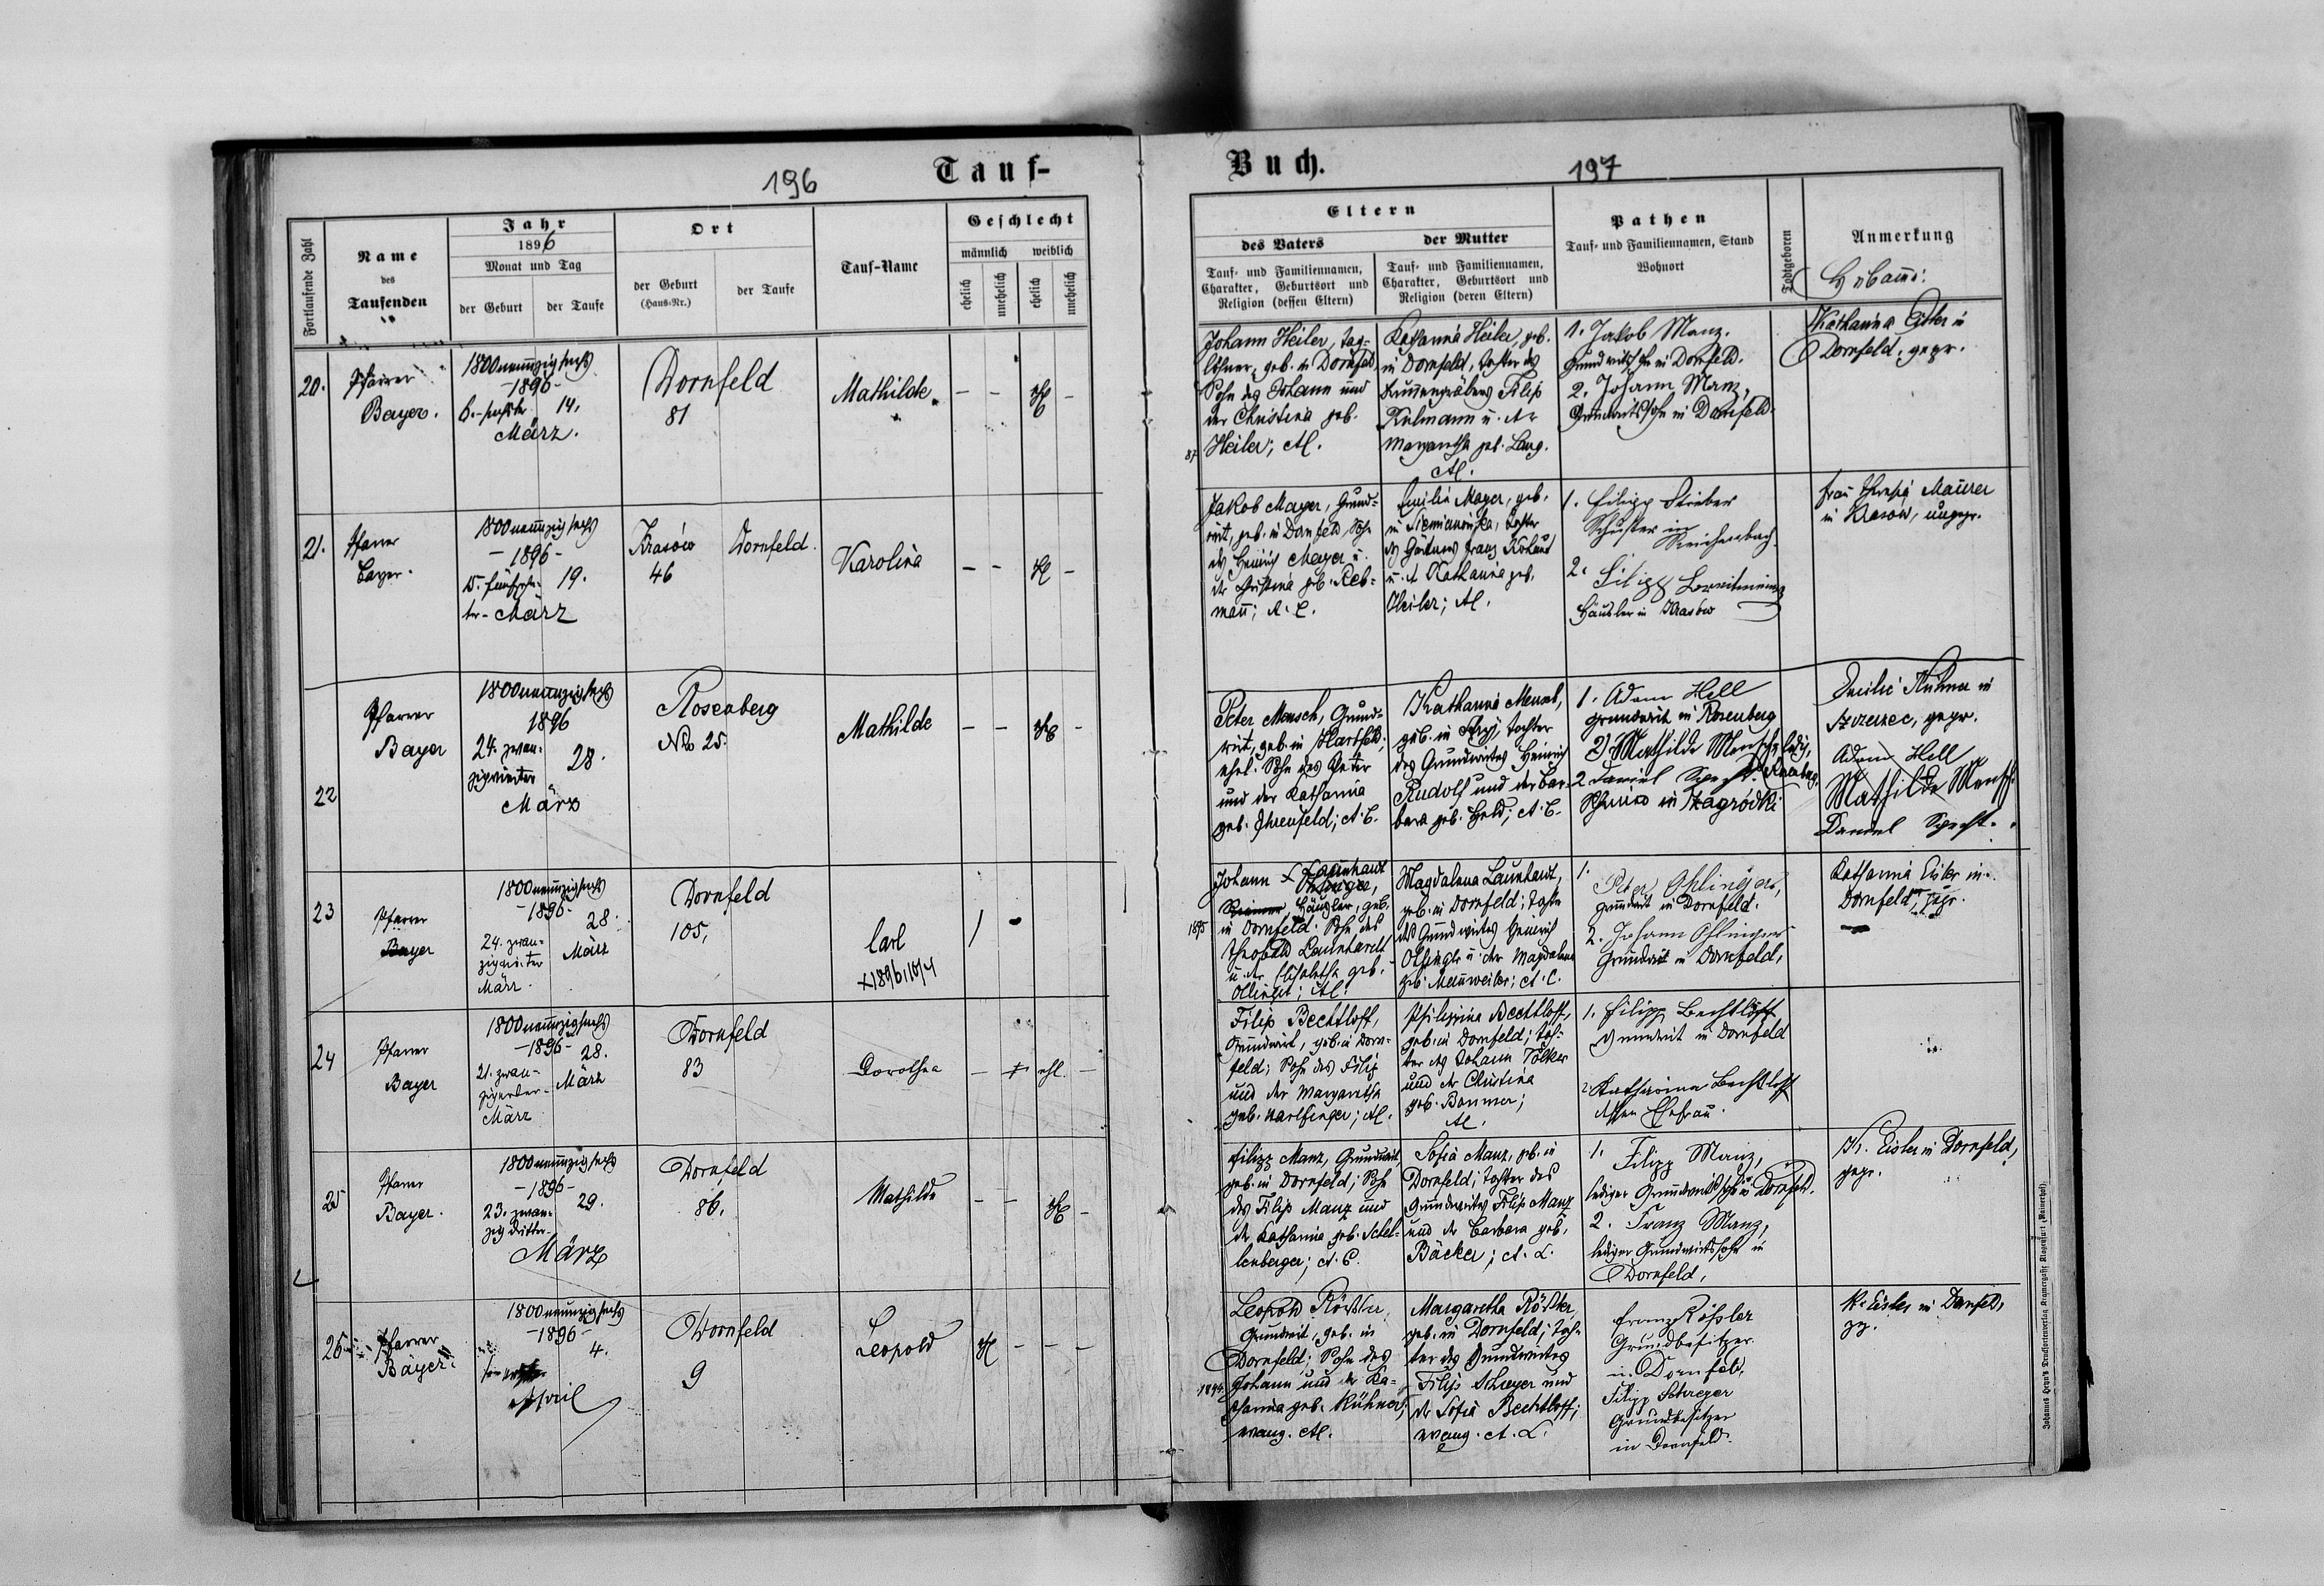 196
Tauf-
Fortlaufende Zahl
Name
des
Taufenden
Jahr
1896
Monat und Tag
der Geburt
der Taufe
Ort
der Geburt
(Haus-Nr.)
der Taufe
Tauf-Name
Geschlecht
männlich
weiblich
ehelich
unehelich
ehelich
unehelich
20.
Pfarrer
Bayer.
1800neunzigsechs
-1896-
6.-sechster 14.
März.
Dornfeld
81
Mathilde
- - ehl -
21.
Pfarrer
Bayer.
1800neunzigsechs
-1896-
15. fünfzehn- 19.
ter- März
Krasów Dornfeld.
46
Karolina
- - ehl -
22
Pfarrer
Bayer
1800neunzigsechs
1896
24. zwan- 28.
zigvierter
März
Rosenberg
No 25.
Mathilde
- - ehl -
23
Pfarrer
Bayer
1800neunzigsechs
-1896-
28.
24. zwan- März
zigvierter
März.
Dornfeld
105,
Carl
+1896,10/4
1 -
24
Pfarrer
Bayer
1800neunzigsechs
-1896-
28.
21. zwan- März
zigerster-
März
Dornfeld
83
Dorothea
- + ehl. -
25
Pfarrer
Bayer.
1800neunzigsechs
-1896-
23. zwan- 29.
zigdritter-
März
Dornfeld
86.
Mathilde
- - ehl -
26
Pfarrer
Bayer.
1800neunzigsechs
-1896-
4.
April
Dornfeld
9
Leopold
ehl - - -
Buch.
197
Eltern
des Vaters
Tauf- und Familiennamen,
Charakter, Geburtsort und
Religion (dessen Eltern)
der Mutter
Tauf- und Familiennamen,
Charakter, Geburtsort und
Religion (deren Eltern)
Pathen
Tauf- und Familiennamen, Stand
Wohnort
Todtgeboren
Anmerkung
Hebamme:
Johann Heiler, Tag-
löhner, geb. in Dornfeld,
Sohn des Johann und
der Christina geb.
Heiler; A.C.
87
Katharina Heiler, geb.
in Dornfeld, Tochter des
Brunnengräbers Filip
Kulmann u. der
Margaretha geb. Lang.
A.C.
1. Jakob Manz.
Grundwirtssohn in Dornfeld.
2. Johann Manz,
Grundwirtssohn in Dornfeld.
Katharina Eisler in
Dornfeld, gepr.
Jakob Mayer, Grund-
wirt, geb. in Dornfeld, Sohn
des Heinrich Mayer u.
der Christina geb. Reb-
mann; A.C.
Emilia Mayer, geb.
in Siemianówka, Tochter
des Gärtners Franz Kohaut
u. d. Katharina geb.
Heiler; A.C.
1. Filipp Stieber
Schuster in
Reichenbach
2. Filipp
Häusler in Krasów
Frau Theresia Maurer
in Krasów, ungepr.
Peter Mensch, Grund-
wirt, geb. in Hartfeld,
ehel. Sohn des Peter
und der Katharina
geb. Ehrenfeld; A.C.
Katharina Mensch,
geb. in, Tochter
des Grundwirtes Heinrich
Rudolf und der Bar-
bara geb. Held; A.C.
1. Adam Hell
Grundwirt in Rosenberg
2) Mathilde Mensch, ledig,
Rosenberg
2 Daniel Specht
in Zagródki
Kühner in
Szczerzec, gepr.
Adam Hell
Mathilde Mensch
Daniel Specht.
Johann + Launhardt
Ohlinger,
Häusler, geb.
in Dornfeld: Sohn des
Theobald Launhardt
u. der Elisabetha geb.
Ollinger; A.C.
1895
Magdalena Launhardt,
geb. in Dornfeld; Tochter
des Grundwirtes Heinrich
Ohlinger u. der Magdalena
geb. Mannweiler; A.C.
1.
Peter Ohlinger,
Grundwirt in Dornfeld.
2. Johann Ohlinger
Grundwirt in Dornfeld,
Katharina Eisler in
Dornfeld, gepr.
Filip Bechtloff,
Grundwirt, geb. in Dorn-
feld; Sohn des Filip
und der Margaretha
geb. Harlfinger; A.C.
Philippina Bechtloff,
geb. in Dornfeld; Toch-
ter des Johann Völker
und der Christina
geb. Bonner;
A.C.
1. Filipp Bechtloff
Grundwirt in Dornfeld
2. Katharina Bechtloff
dessen Ehefrau.
Filipp Manz, Grundwirt,
geb. in Dornfeld; Sohn
des Filip Manz und
der Katharina geb. Schel-
lenberger; A.C.
Sofia Manz, geb. in
Dornfeld; Tochter des
Grundwirtes Filip Manz
und der Barbara geb.
Bäcker; A.C.
1. Filipp Manz,
lediger Grundwirtssohn in Dornfeld.
2. Franz Manz,
lediger Grundwirtssohn in
Dornfeld,
K. Eisler in Dornfeld,
gepr.
Leopold Rößler
Grundwirt, geb. in
Dornfeld; Sohn des
Johann und der Ka-
tharina geb. Kühner;
evang. A.C.
1894
Margaretha Rößler
geb. in Dornfeld; Toch-
ter des Grundwirtes
Filip Schreyer und
der Sofia Bechtloff;
evang. A.C.
Franz Rößler
Grundbesitzer
in Dornfeld,
Filipp Schreyer
Grundbesitzer
in Dornfeld.
K. Eisler in Dornfeld,